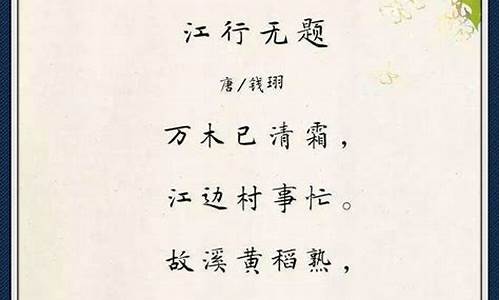 江行无题
唐/钱珝
万木已清霜，
江边村事忙。
故溪黄稻熟，